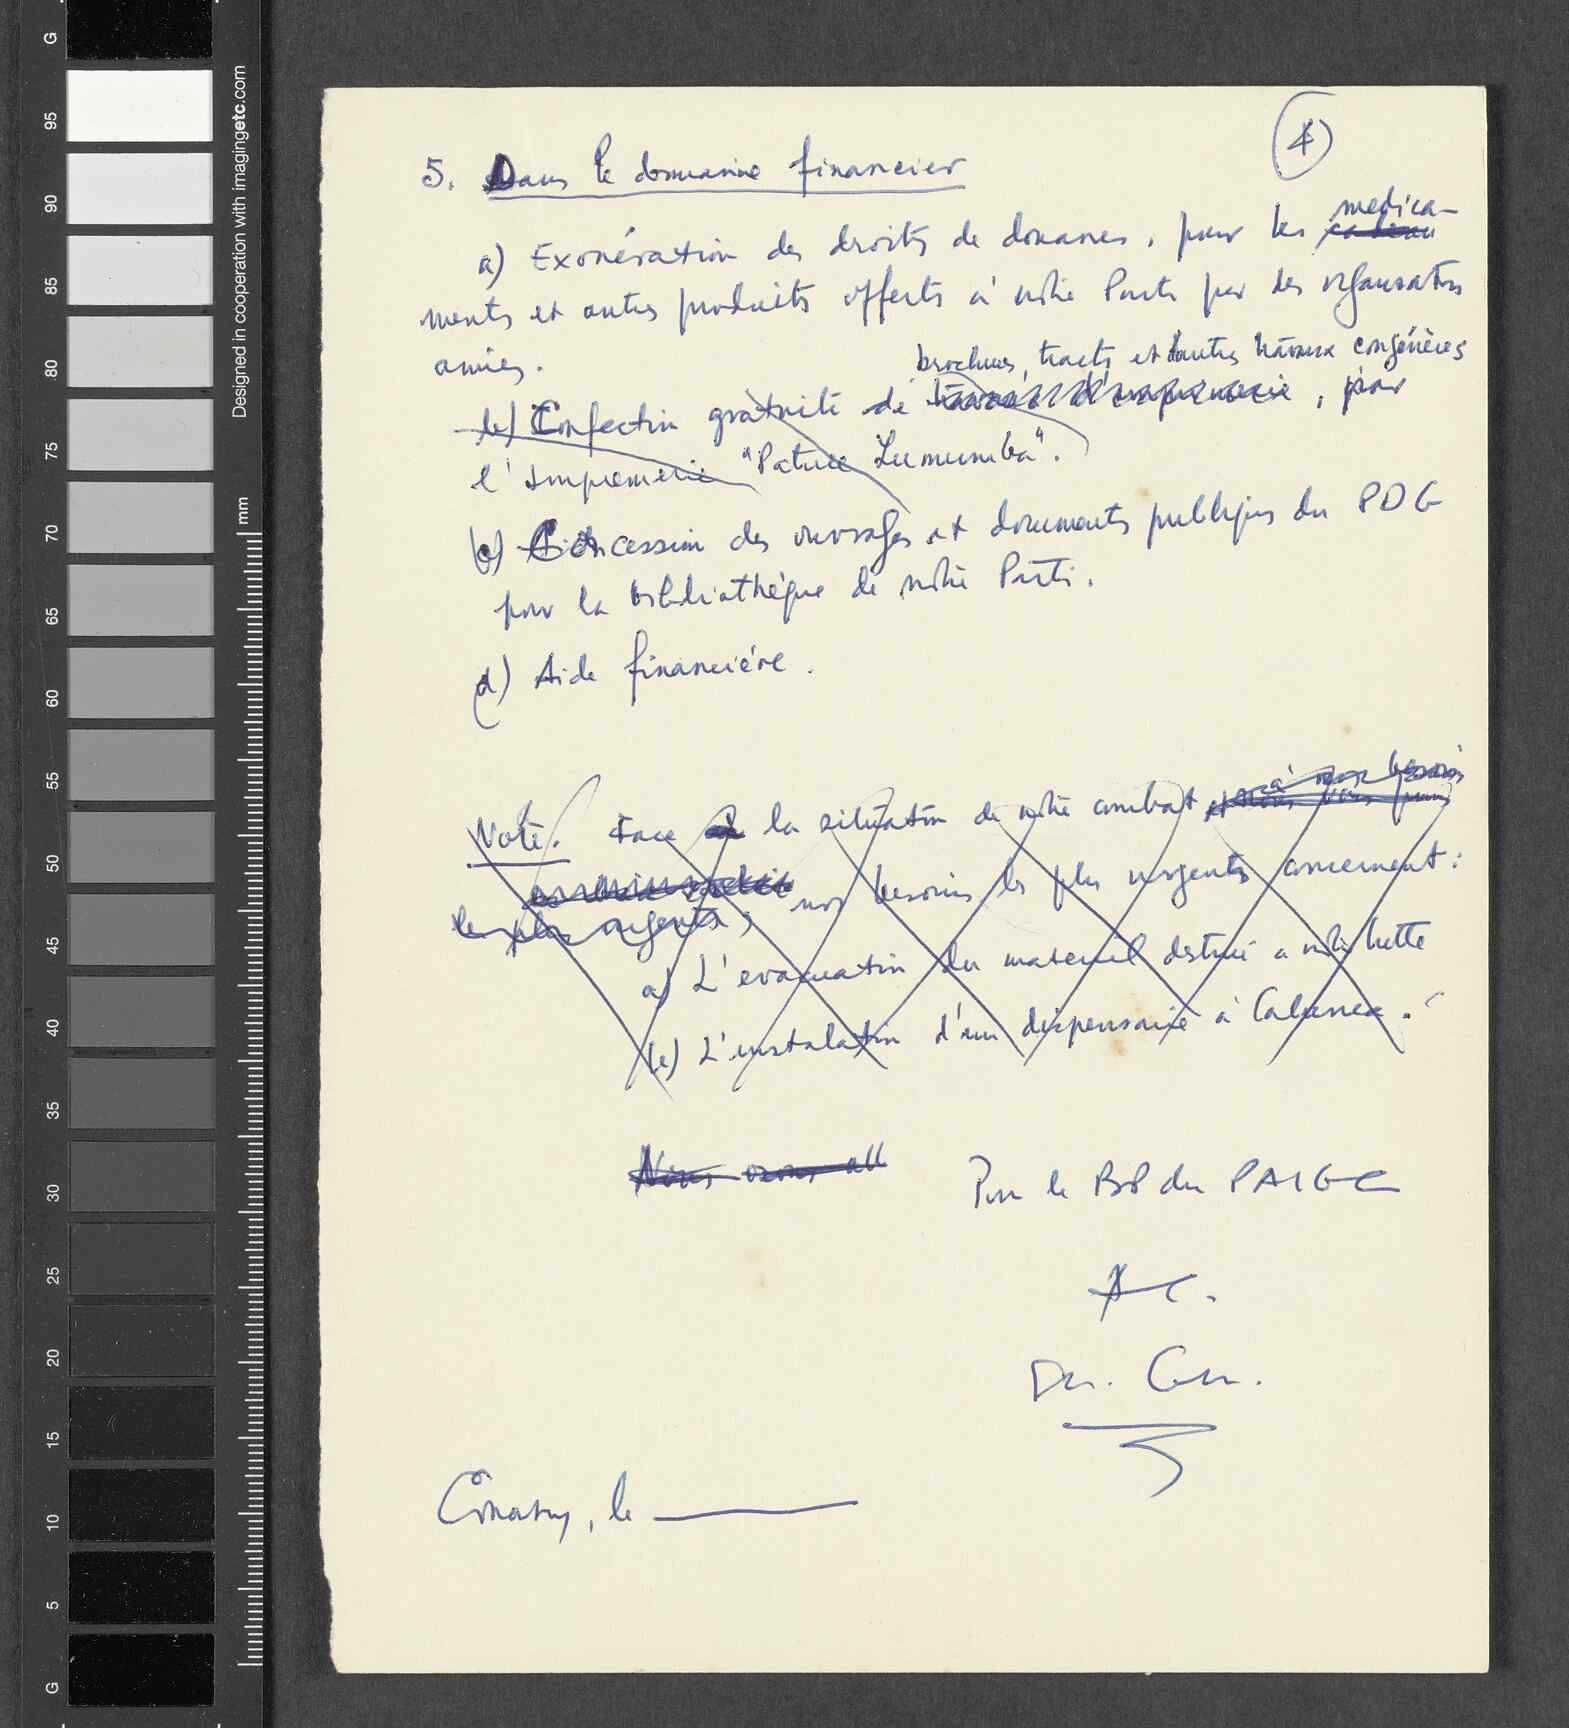 4
5. Dans le domaine financier
a) Exonération des droits de douanes, pour les medica-
ments et autres produits offerts à notre Parti par des organisations
amies.
brochures, tracts et d'autres travaux congénères
b) Confection gratuite de travaux d'imprimerie, par
l'Imprimerie "Patrice Lumumba".
b) Concession des ouvrages et documents publiques du PDG
pour la bibliothéque de notre Parti.
d) Aide financiére.
à nos besoins
Note. Face à la situation de notre combat et
les plus urgents, nos besoins les plus urgents concernent:
a) L'evacuation du materiel destiné a notre lutte
b) L'instalation d'un dispensaire à
Nous avons all
Pour le BP du PAIGC
AC.
Conakry, le
G
95
90
85
80
75
70
65
60
55
50
45
40
35
30
25
20
15
10
5
G
Designed in cooperation with imagingetc.com
mm